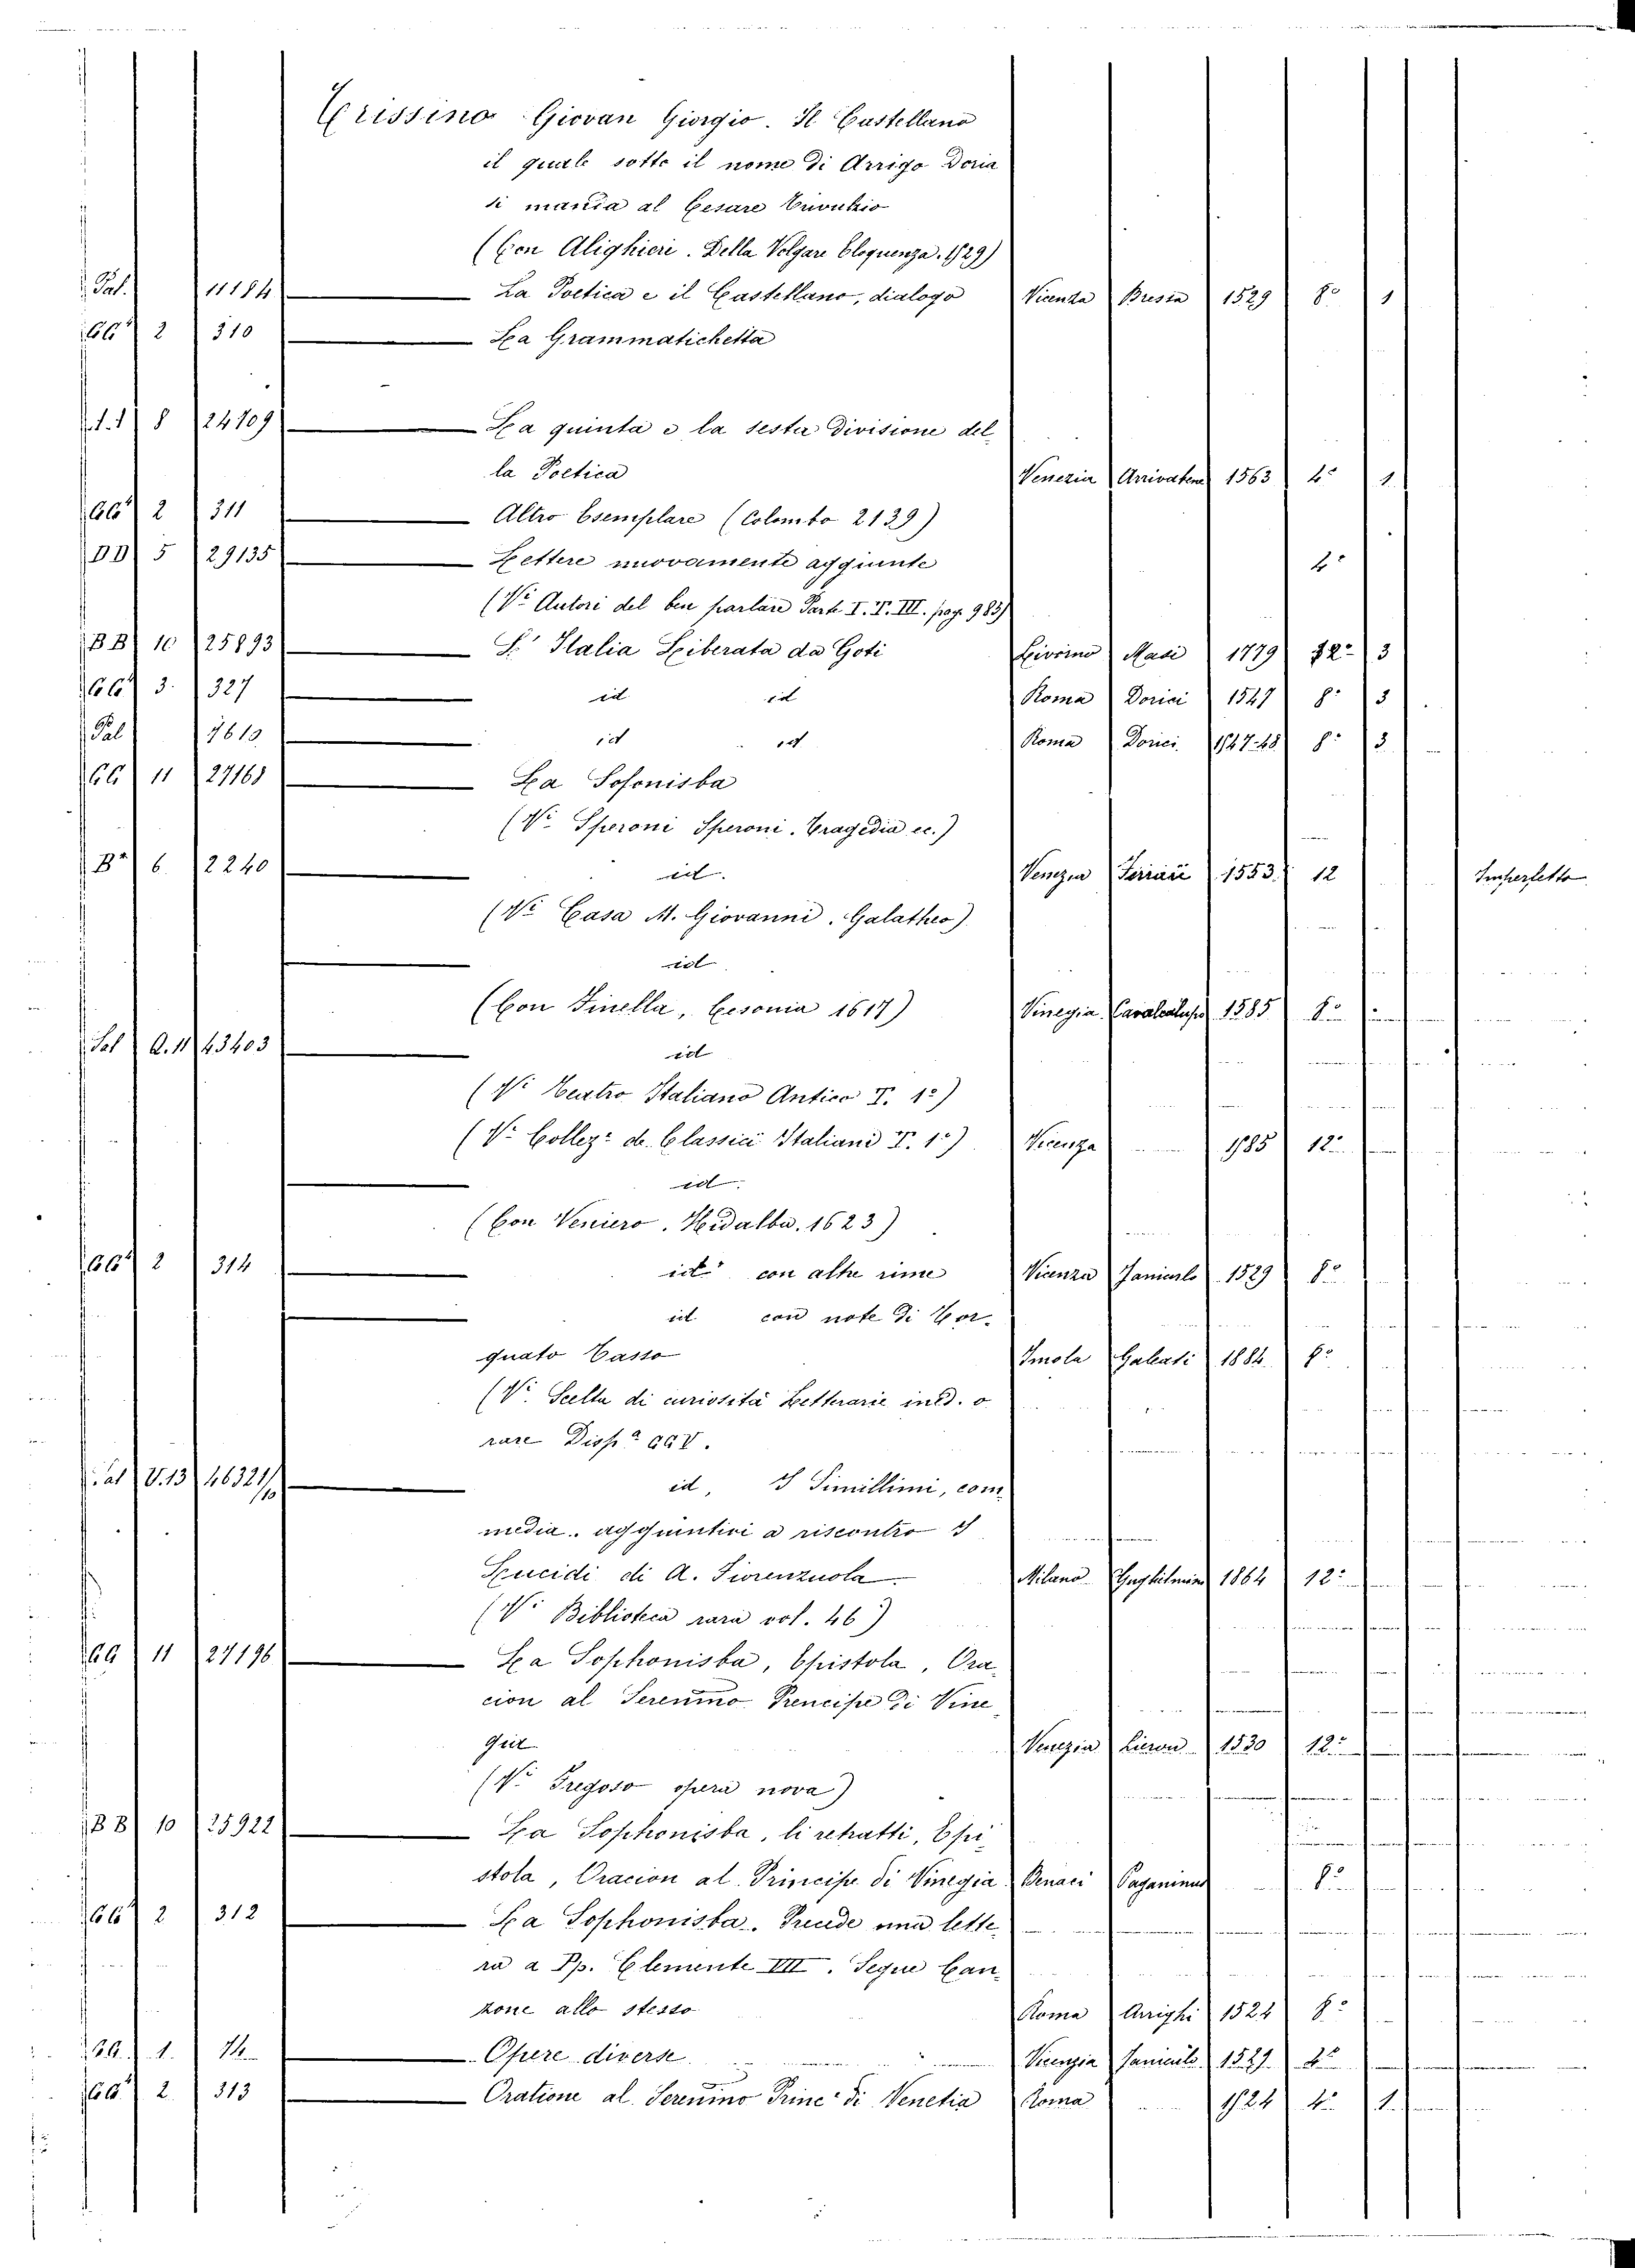 Trissino Giovan Giorgio. Il Castellano
il quale sotto il nome di Arrigo Doria
si manda al Cesare Trivultio
(Con Alighieri. Della Volgare Eloquenza. 1729)
Pal. 11184 La Poetica e il Castellano, dialogo Vicenza 1529 8º 1
2 310 La Grammatichetta
8 24709 La quinta e la sesta divisione del
la Poetica Venezia Arrivabene 1563 4º 1
2 311 Altro Esemplare (Colombo 2139)
DD 5 29135 Lettere nuovamente aggiunte 4º
(Vi Autori del ben parlare Part. I. T. III. pag. 983)
BB 10 25893 L' Italia Liberata da Goti Livorno Masi 1779 12º 3
3. 327 id id Roma Dorici 1547 8º 3
Pal 7613 id id Roma Dorici 1547-48 8º 3
11 27168 La Sofonisba
(Vi Speroni Speroni. Tragedia ec.)
6. 2240 id. Venezia 1553 12 Imperfetto
(Vi Casa M. Giovanni. Galatheo)
id
(Con Finella, Cesonia 1617) Vinegia Cavalcalupo 1585 8º
Pal 43403 id
(Vi Teatro Italiano Antico T. 1º)
(Vi Collezº de Classici Italiani T. 1º) Vicenza 1785 12º
id
(Con Veniero. Hidalba. 1623)
2 314 id con altre rime Vicenza Janiculo 1529 8º
id con note di Tor-
quato Tasso Imola Galeati 1884 8º
(Vi Scelta di curiosità Letterarie ined. o
rare Dispª
V.13 46321/10 id, I Simillimi, com
media. aggiuntivi a riscontro I
Lucidi di A. Fiorenzuola Milano 1864 12º
(Vi Biblioteca rara vol. 46)
11 27196 La Sophonisba, Epistola, Ora
cion al Serenimo Prencipe di Vine
gia Venezia 1530 12º
(Vi Fregoso opera nova)
BB 10 25922 La Sophonisba, li retratti, Epi
stola, Oracion al Principe di Vinegia Benaci Paganinus 8º
2 312 La Sophonisba. Precede una lette
ra a Pp. Clemente VII. Segue Can
zone allo stesso Roma Arrighi 1524 8º
1. Opere diverse Vicenzia Janiculo 1529 4º
2 313 Oratione al Serenimo Princº di Venetia Roma 1524 4º 1